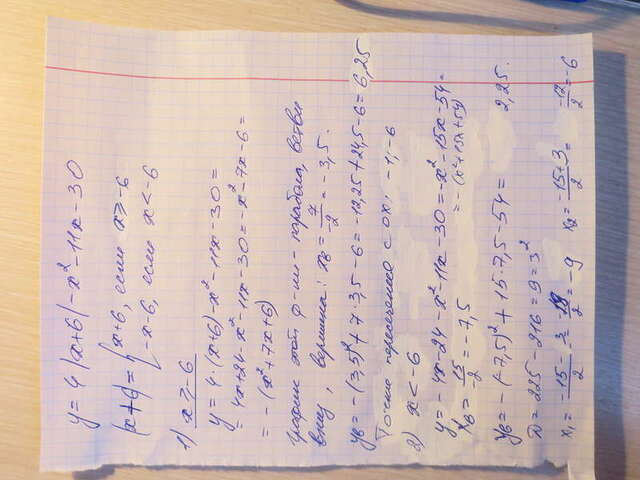 y = 4 |x+6| - x² - 11x - 30
|x+6| = { x+6, если x ≥ -6
-x-6, если x < -6
1) x ≥ -6
y = 4·(x+6) - x² - 11x - 30 =
= 4x+24 - x² - 11x - 30 = -x² - 7x - 6 =
= -(x² + 7x + 6)
График этой ф-ии - парабола, ветви
вниз, вершина: xв = 7/-2 = -3,5.
yв = -(3,5)² + 7·3,5 - 6 = -12,25 + 24,5 - 6 = 6,25
Точки пересечения с ох, -1; -6
2) x < -6
y = -4x - 24 - x² - 11x - 30 = -x² - 15x - 54 =
= -(x² + 15x + 54)
xв = 15/-2 = -7,5
yв = -(-7,5)² + 15·7,5 - 54 = 2,25.
D = 225 - 216 = 9 = 3²
x₁ = -15-3/2 = -18/2 = -9 x₂ = -15+3/2 = -12/2 = -6